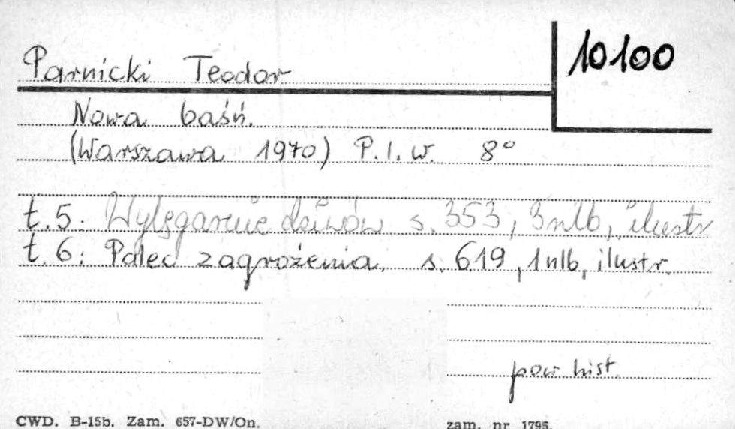 10100
Parnicki Teodor
Nowa baśń.
(Warszawa 1970) P.I.W. 8°
t.5. Wylęganie dziwów s.353, 3nlb, ilustr
t.6: Palec zagrożenia s.619, 1nlb, ilustr.
pow hist.
CWD. B-15b. Zam. 657-DW/On. zam. nr 1795